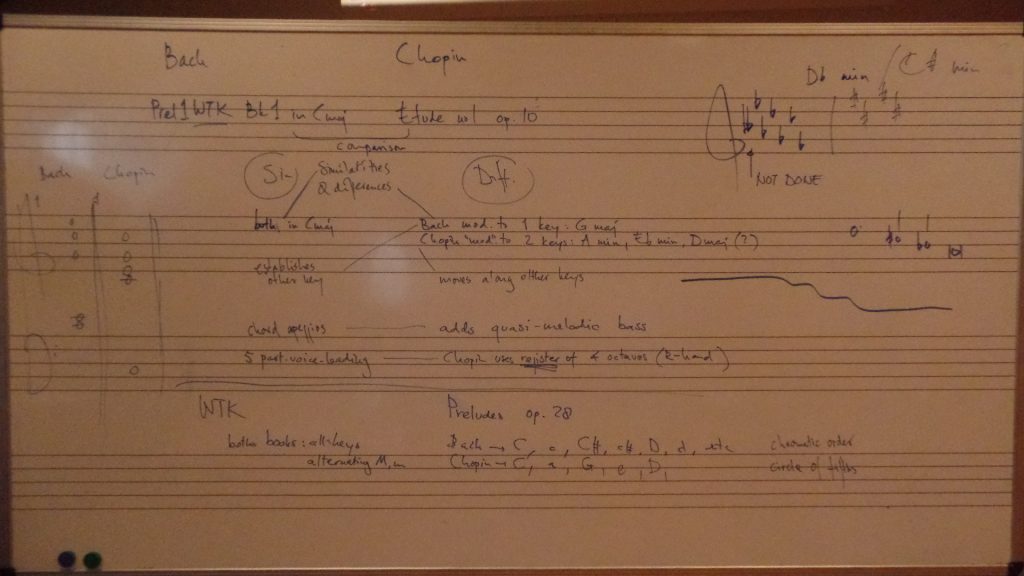 Bach Chopin
Db min / C# min
Prel 1 WTK Bk 1 in Cmaj Etude no 1 op. 10
comparison
NOT DONE
Bach Chopin
Sim Similarities & differences Diff.
both in Cmaj Bach mod. to 1 key: G maj
Chopin "mod" to 2 keys: A min, Eb min, D maj (?)
establishes other key moves along other keys
chord arpeggios adds quasi-melodic bass
5 part-voice-leading Chopin uses register of 4 octaves (R-hand)
WTK Preludes op. 28
both books: all keys Bach → C, c, C#, c#, D, d, etc chromatic order
alternating M, m Chopin → C, a, G, e, D, circle of fifths